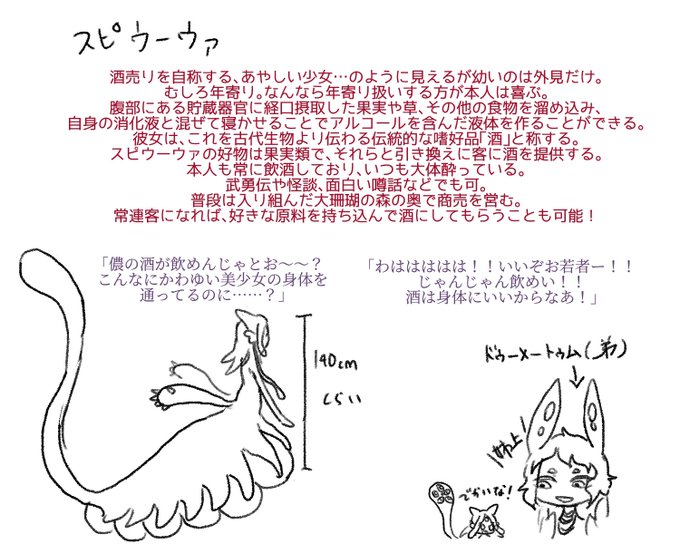 スピウーウァ
酒売りを自称する、あやしい少女…のように見えるが幼いのは外見だけ。
むしろ年寄り。なんなら年寄り扱いする方が本人は喜ぶ。
腹部にある貯蔵器官に経口摂取した果実や草、その他の食物を溜め込み、
自身の消化液と混ぜて寝かせることでアルコールを含んだ液体を作ることができる。
彼女は、これを古代生物より伝わる伝統的な嗜好品「酒」と称する。
スピウーウァの好物は果実類で、それらと引き換えに客に酒を提供する。
本人も常に飲酒しており、いつも大体酔っている。
武勇伝や怪談、面白い噂話などでも可。
普段は入り組んだ大珊瑚の森の奥で商売を営む。
常連客になれば、好きな原料を持ち込んで酒にしてもらうことも可能！
「儂の酒が飲めんじゃとお〜〜？
こんなにかわゆい美少女の身体を
通ってるのに……？」
「わはははははは！！いいぞお若者ー！！
じゃんじゃん飲めい！！
酒は身体にいいからなあ！」
140cm
くらい
ドゥーメートゥム(弟)
姉上
でかいな！